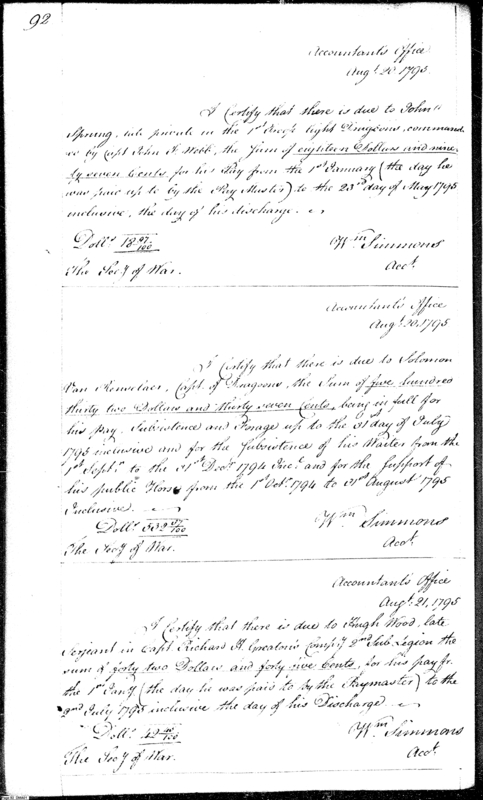 92
Accountant's Office
Augt. 20 1795
I Certify that there is due to John
Spring, late private in the 1st Troop light Dragoons, command
ed by Capt John A. Webb, the Sum of eighteen Dollars and nine
ty seven Cents for his Pay from the 1st January (the day he
was paid up to by the Pay Master) to the 23rd day of May 1795
inclusive, the day of his discharge.
Dolls. 18 97/100
Wm Simmons
The Secy of War.
Acct.
Accountant's Office
Augt. 20, 1795
I Certify that there is due to Solomon
Van Renselaer, Capt. of Dragoons, the Sum of five hundred
thirty two Dollars and thirty seven Cents, being in full for
his pay, Subsistence and Forage up to the 31st day of July
1795 inclusive and for the Subsistence of his Waiter from the
1st Septr. to the 31st Decr. 1794 Incd. and for the Support of
his public Horse from the 1st Octr. 1794 to 31st August 1795
Inclusive.
Dolls. 532 37/100
Wm Simmons
The Secy of War.
Acct.
Accountant's Office
Augt. 21, 1795
I Certify that there is due to Hugh Wood, late
Sergeant in Capt Richard H. Greaton's Compy 2nd Sub Legion the
sum of forty two Dollars and forty five Cents, for his pay fr.
the 1st Jany (the day he was paid to by the Paymaster) to the
2nd July 1795 inclusive the day of his Discharge.
Dolls. 42 45/100
Wm Simmons
The Secy of War.
Acct.